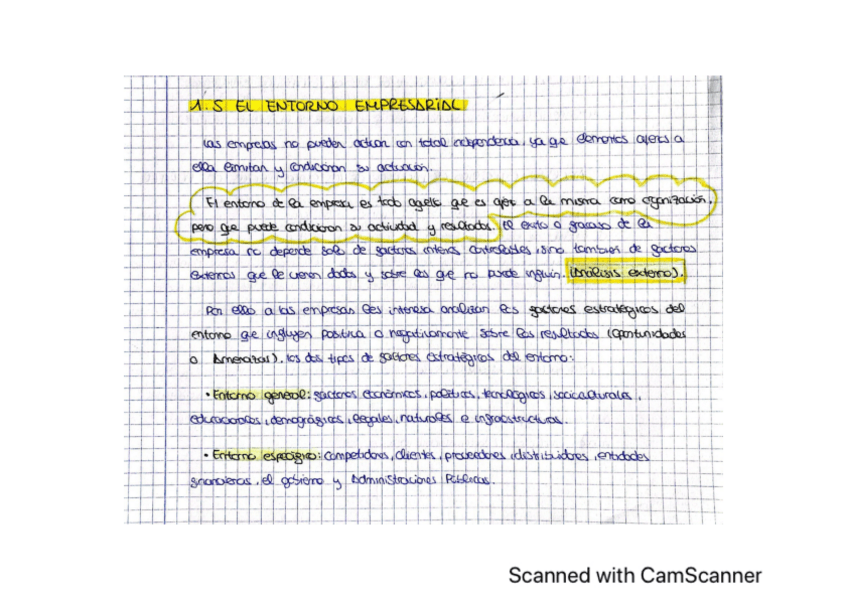 1.5 EL ENTORNO EMPRESARIAL
Las empresas no pueden actuar con total independencia, ya qe elementos ajenos a
ella limitan y condicionan su actuación.
El entorno de la empresa es todo aquello qe es ajeno a la misma como organización,
pero qe puede condicionar su actividad y resultados. El éxito o fracaso de la
empresa no depende solo de factores internos controlables, sino también de factores
externos que le vienen dados y sobre los qe no puede influir. (Análisis externo).
Por ello a las empresas les interesa analizar los factores estratégicos del
entorno qe influyen positiva o negativamente sobre los resultados (oportunidades
o Amenazas). los dos tipos de factores estratégicos del entorno:
• Entorno general: factores económicos, políticos, tecnológicos, socioculturales,
educacionales, demográficos, legales, naturales e infraestructuras.
• Entorno específico: competidores, clientes, proveedores, distribuidores, entidades
financieras, el gobierno y Administraciones Públicas.
Scanned with CamScanner